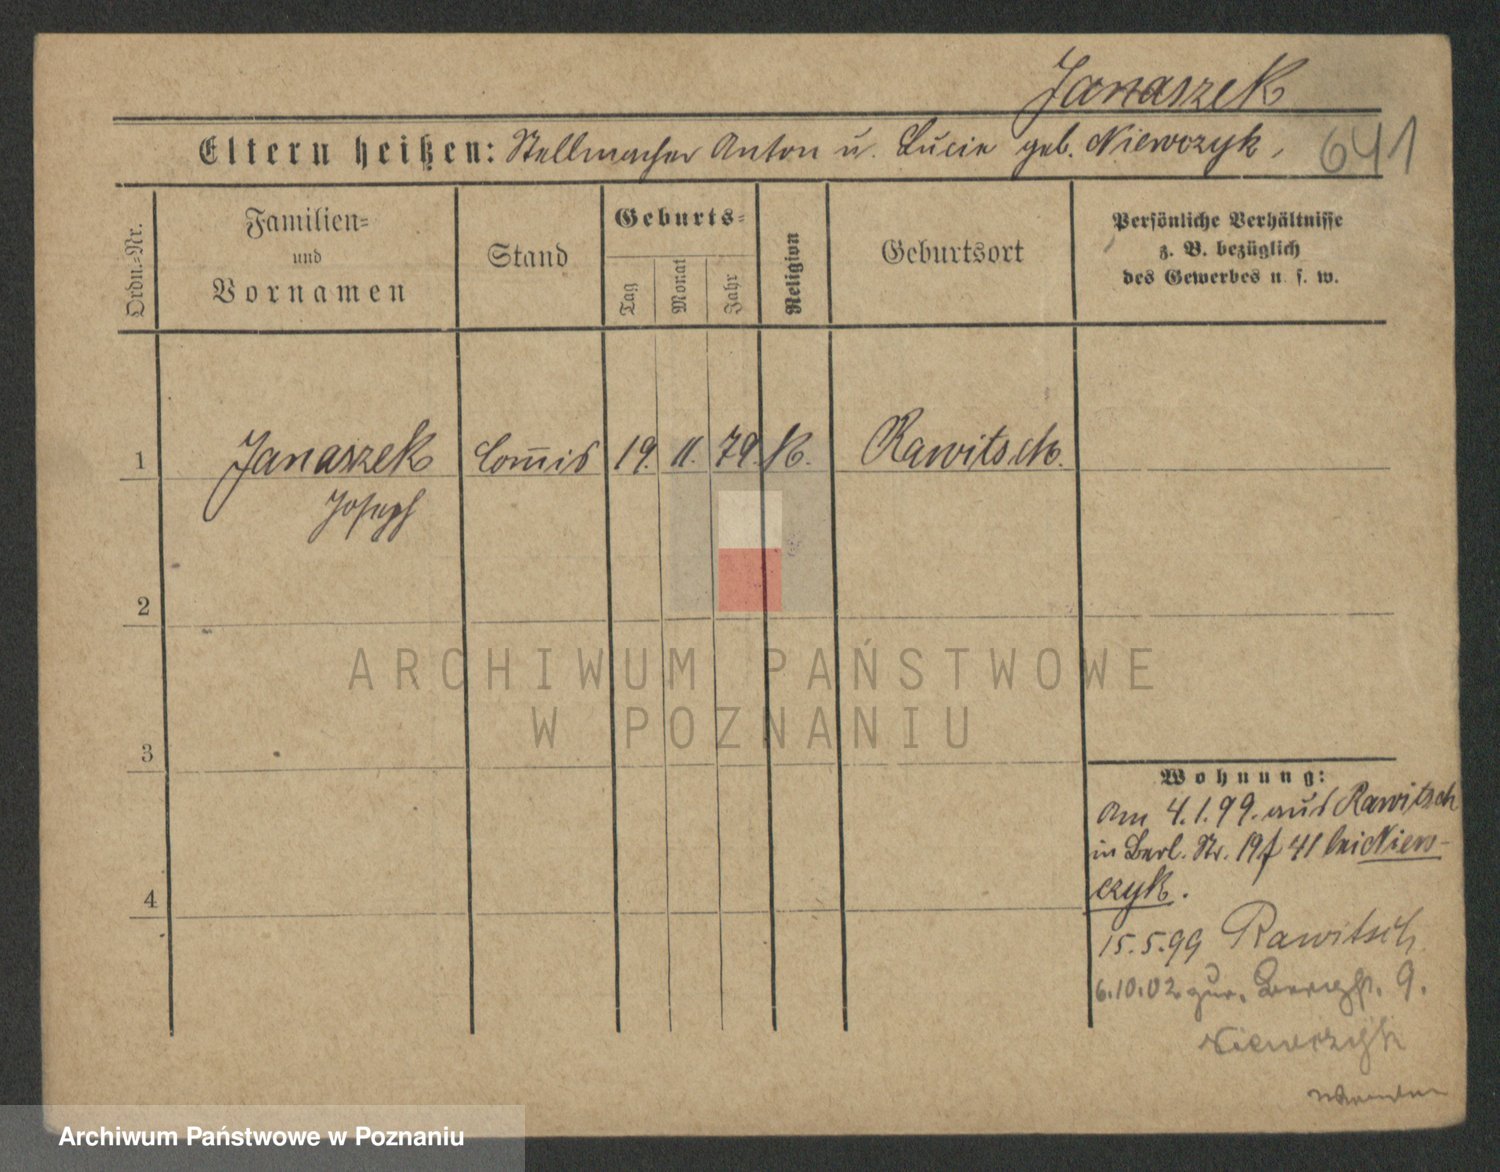 Janaszek
Eltern heißen: Stellmacher Anton u. Lucie geb. Niewczyk,
641
Ordn.-Nr.
Familien-
und
Vornamen
Stand
Geburts-
Tag
Monat
Jahr
Religion
Geburtsort
Persönliche Verhältnisse
z. B. bezüglich
des Gewerbes u. s. w.
1 Janaszek Com̅is 19. 11. 79. K. Rawitsch.
Joseph
2
ARCHIWUM PAŃSTWOWE
W POZNANIU
3
Wohnung:
Am 4.1.99. aus Rawitsch
in Berl. Str. 19f 41 bei Niew-
czyk.
4
15.5.99 Rawitsch
6.10.02 zur. Bergstr. 9.
Niewczyk
Archiwum Państwowe w Poznaniu